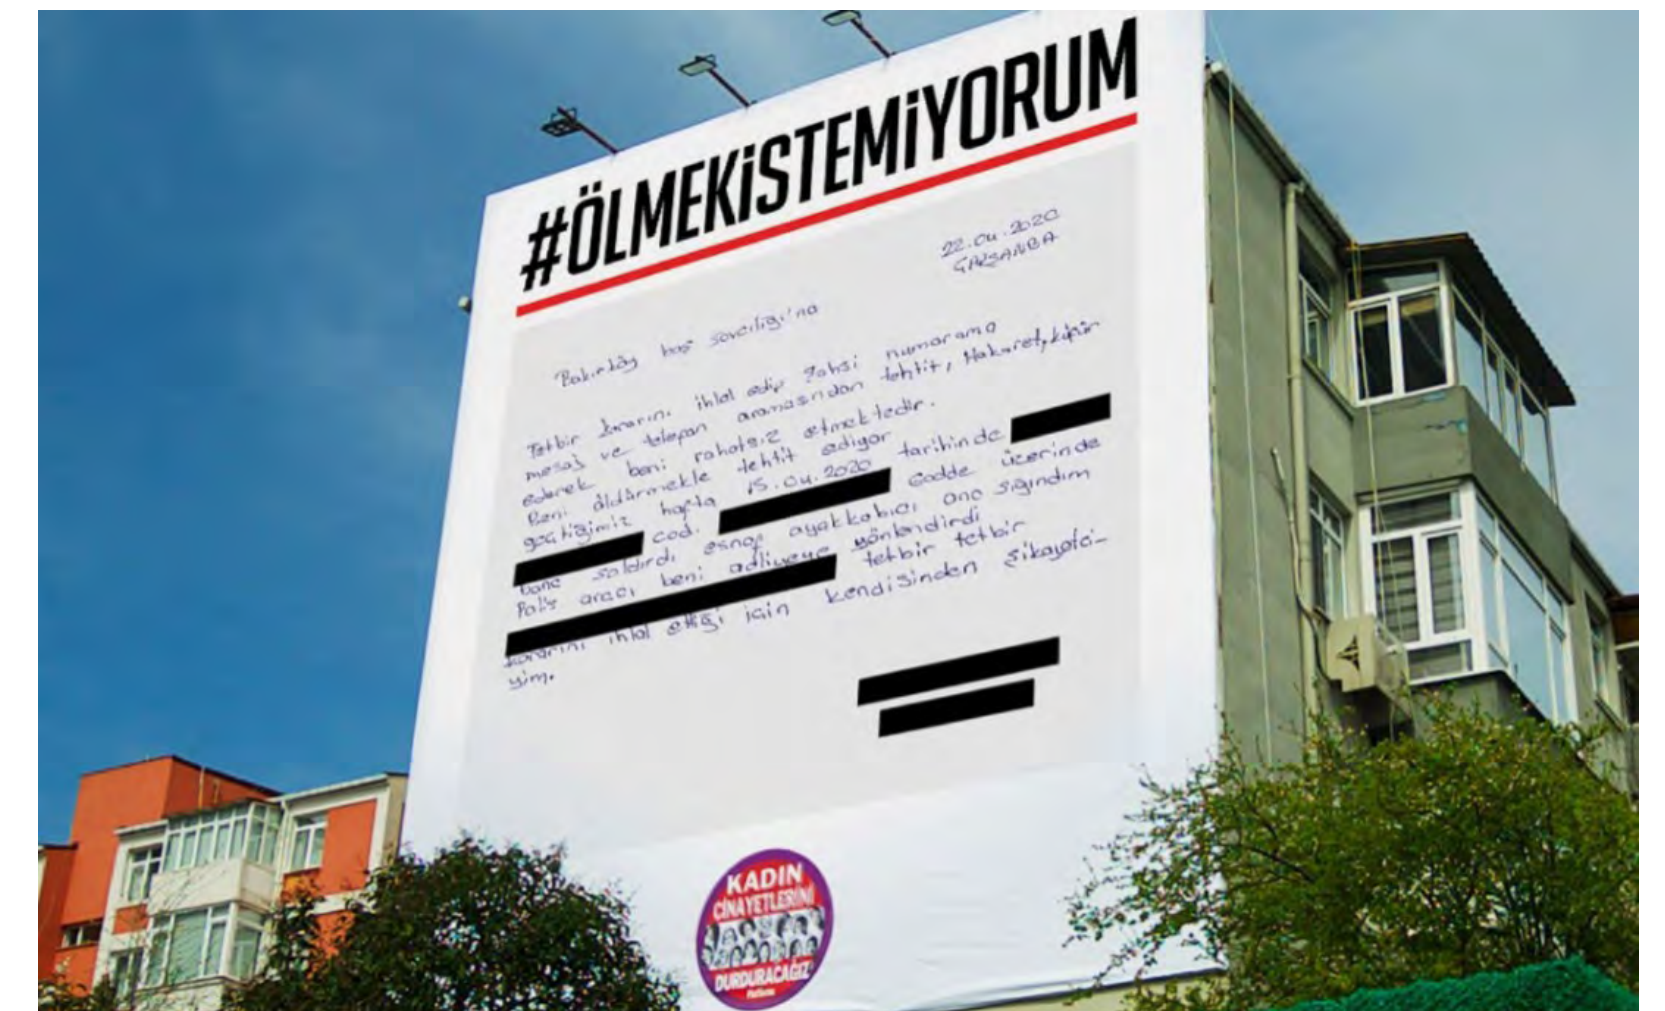 #ÖLMEKİSTEMİYORUM
22.04.2020
ÇARŞANBA
Bakırköy baş savcılığı'na
Tetbir kararını ihlal edip şahsi numarama
mesaj ve telefon aramasından tehtit, Hakaret, küfür
ederek beni rahatsız etmektedir.
Beni öldürmekle tehtit ediyor
geçtiğimiz hafta 15.04.2020 tarihinde
cad. Cadde üzerinde
bana saldırdı esnaf ayakkabıcı ona sığındım
Polis aracı beni adliyeye yönlendirdi
tetbir tetbir
kararını ihlal ettiği için kendisinden şikayetci-
yim.
KADIN
CİNAYETLERİNİ
DURDURACAĞIZ
Platformu